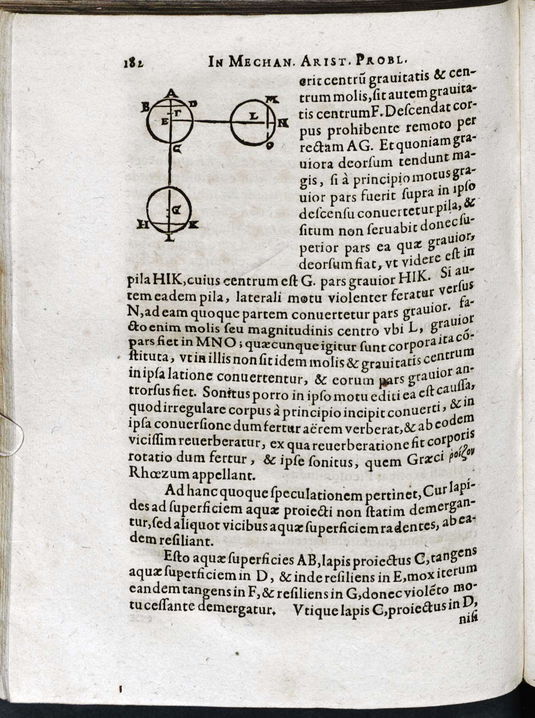 182 IN MECHAN. ARIST. PROBL.
erit centrũ grauitatis & cen-
trum molis, sit autem grauita-
tis centrum F. Descendat cor-
pus prohibente remoto per
rectam AG. Et quoniam gra-
uiora deorsum tendunt ma-
gis, si à principio motus gra-
uior pars fuerit supra in ipso
descensu conuertetur pila, &
situm non seruabit donec su-
perior pars ea quæ grauior,
deorsum fiat, vt videre est in
pila HIK, cuius centrum est G. pars grauior HIK. Si au-
tem eadem pila, laterali motu violenter feratur versus
N, ad eam quoque partem conuertetur pars grauior. fa-
cto enim molis seu magnitudinis centro vbi L, grauior
pars fiet in MNO; quæcunque igitur sunt corpora ita cõ-
stituta, vt in illis non sit idem molis & grauitatis centrum
in ipsa latione conuertentur, & eorum pars grauior an-
trorsus fiet. Sonitus porro in ipso motu editi ea est caussa,
quod irregulare corpus à principio incipit conuerti, & in
ipsa conuersione dum fertur aërem verberat, & ab eodem
vicissim reuerberatur, ex qua reuerberatione fit corporis
rotatio dum fertur, & ipse sonitus, quem Græci ῥοίζον
Rhœzum appellant.
Ad hanc quoque speculationem pertinet, Cur lapi-
des ad superficiem aquæ proiecti non statim demergan-
tur, sed aliquot vicibus aquæ superficiem radentes, ab ea-
dem resiliant.
Esto aquæ superficies AB, lapis proiectus C, tangens
aquæ superficiem in D, & inde resiliens in E, mox iterum
eandem tangens in F, & resiliens in G, donec violẽto mo-
tu cessante demergatur. Vtique lapis C, proiectus in D,
nisi
A
B
D
F
E
C
M
L
N
O
G
H
K
I